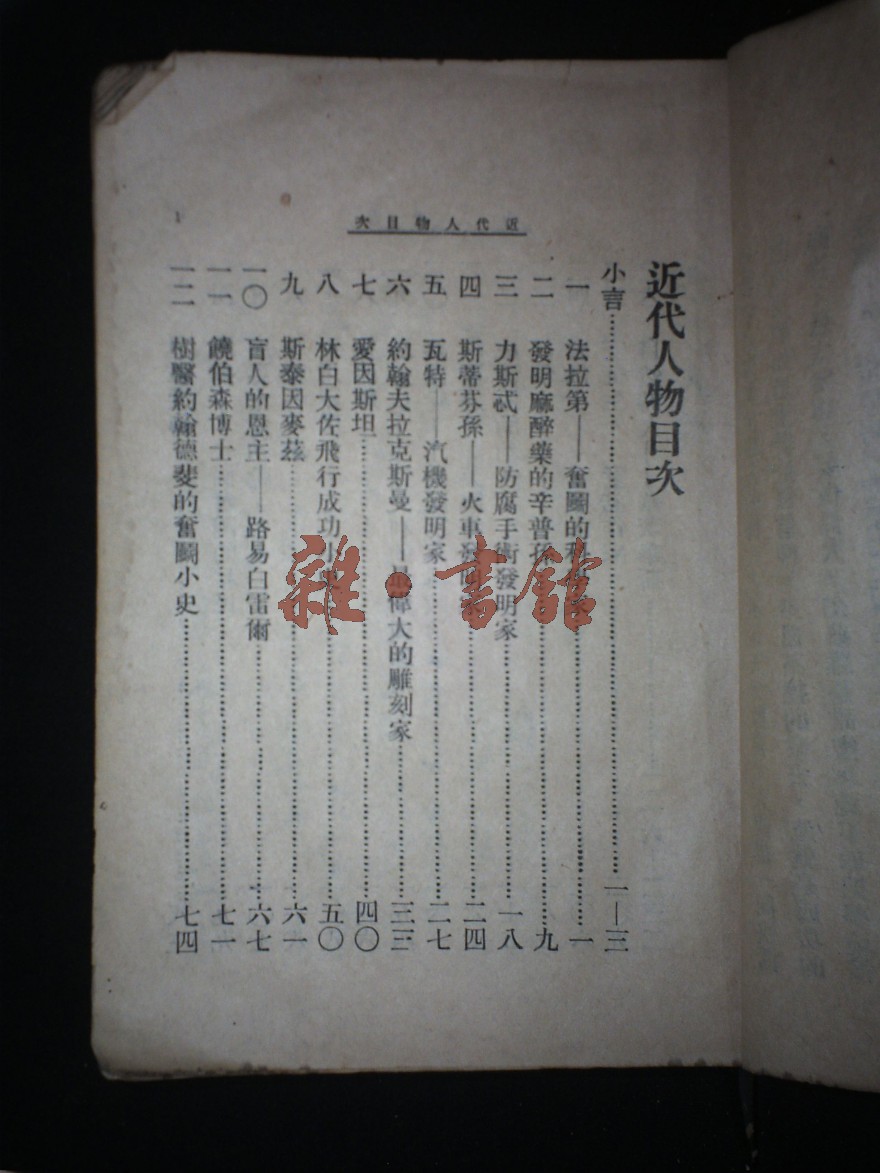 近代人物目次
近代人物目次
1
小言……一—三
一 法拉第——奮鬭的……一
二 發明麻醉藥的辛普孫……九
三 力斯忒——防腐手術發明家……一八
四 斯蒂芬孫——火車發明家……二四
五 瓦特——汽機發明家……二七
六 約翰夫拉克斯曼——最偉大的雕刻家……三三
七 愛因斯坦……四〇
八 林白大佐飛行成功小史……五〇
九 斯泰因麥茲……六一
一〇 盲人的恩主——路易白雷爾……六七
一一 饒伯森博士……七一
一二 樹醫約翰德斐的奮鬭小史……七四
雜·書館